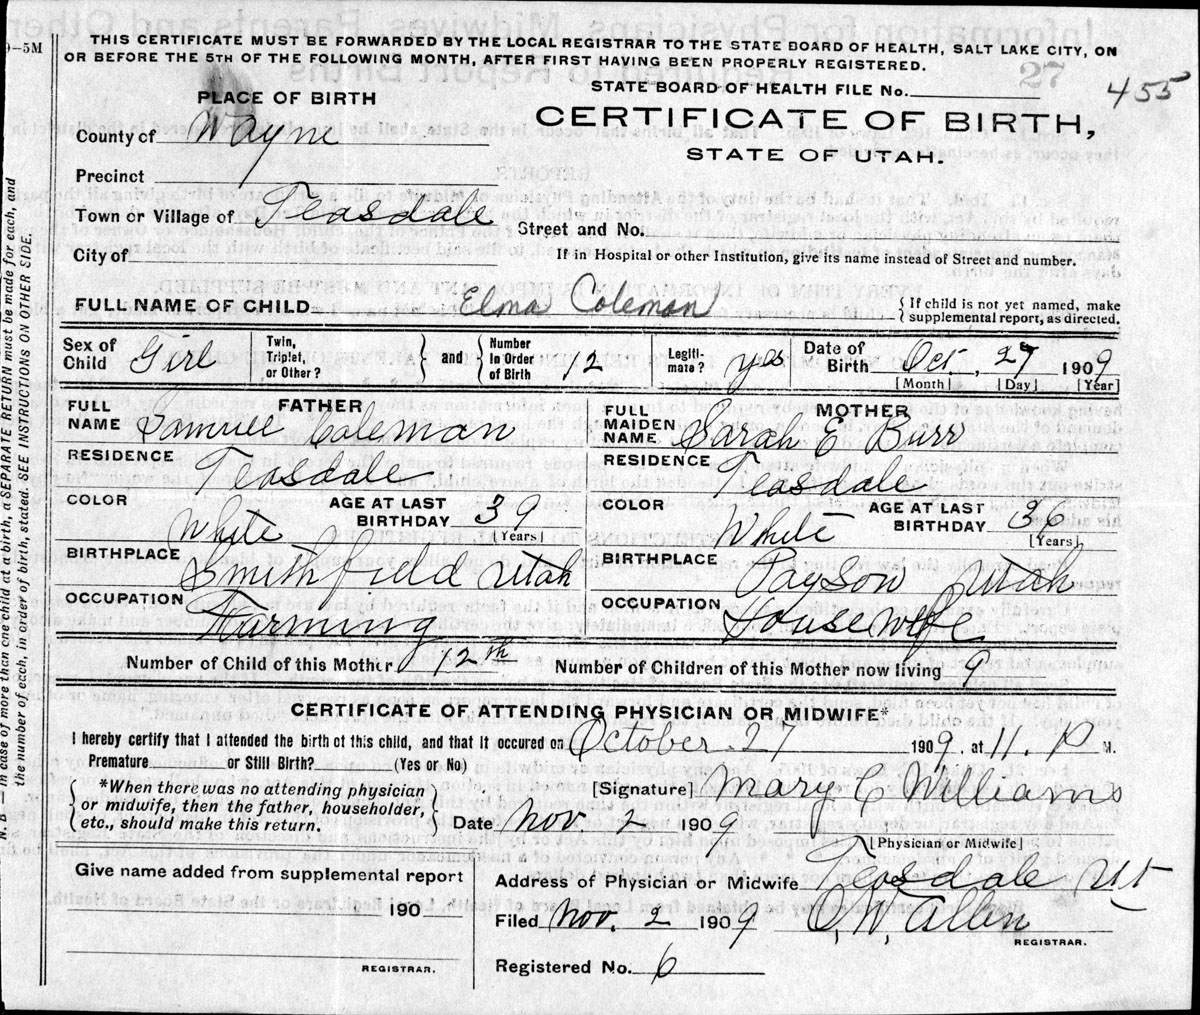 9–5M
THIS CERTIFICATE MUST BE FORWARDED BY THE LOCAL REGISTRAR TO THE STATE BOARD OF HEALTH, SALT LAKE CITY, ON
OR BEFORE THE 5TH OF THE FOLLOWING MONTH, AFTER FIRST HAVING BEEN PROPERLY REGISTERED.
27
STATE BOARD OF HEALTH FILE No. 455
PLACE OF BIRTH
CERTIFICATE OF BIRTH,
County of Wayne
STATE OF UTAH.
Precinct
Town or Village of Teasdale Street and No.
City of If in Hospital or other Institution, give its name instead of Street and number.
FULL NAME OF CHILD Elma Coleman { If child is not yet named, make supplemental report, as directed.
Sex of Child Girl Twin, Triplet, or Other? } and { Number in Order of Birth 12 Legiti- mate? yes Date of Birth Oct. 27 1909
[Month] [Day] [Year]
FATHER
FULL NAME Samuel Coleman
RESIDENCE Teasdale
COLOR White AGE AT LAST BIRTHDAY 39 [Years]
BIRTHPLACE Smithfield Utah
OCCUPATION Farming
MOTHER
FULL MAIDEN NAME Sarah E Burr
RESIDENCE Teasdale
COLOR White AGE AT LAST BIRTHDAY 36 [Years]
BIRTHPLACE Payson Utah
OCCUPATION Housewife
Number of Child of this Mother 12th Number of Children of this Mother now living 9
CERTIFICATE OF ATTENDING PHYSICIAN OR MIDWIFE*
I hereby certify that I attended the birth of this child, and that it occured on October 27 1909. at 11. P M.
Premature or Still Birth? (Yes or No)
{ *When there was no attending physician
or midwife, then the father, householder,
etc., should make this return. }
[Signature] Mary C Williams
Date Nov 2 1909
[Physician or Midwife]
Give name added from supplemental report
190
REGISTRAR.
Address of Physician or Midwife Teasdale Ut
Filed Nov. 2 1909 O, W, Allen
REGISTRAR.
Registered No. 6
N. B. — In case of more than one child at a birth, a SEPARATE RETURN must be made for each, and
the number of each, in order of birth, stated. SEE INSTRUCTIONS ON OTHER SIDE.